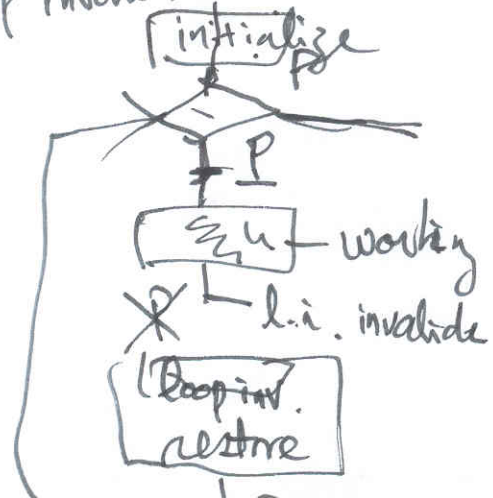 initialize
P
P
working
P
l.i. invalide
loop inv.
restore